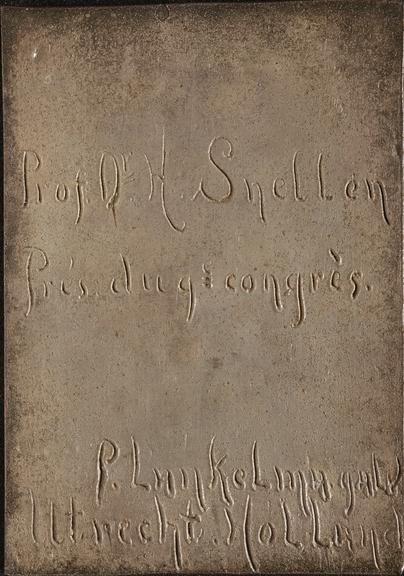 Prof. Dr. H. Snellen
Prés. du 9e congrès.
P.
Utrecht. Holland